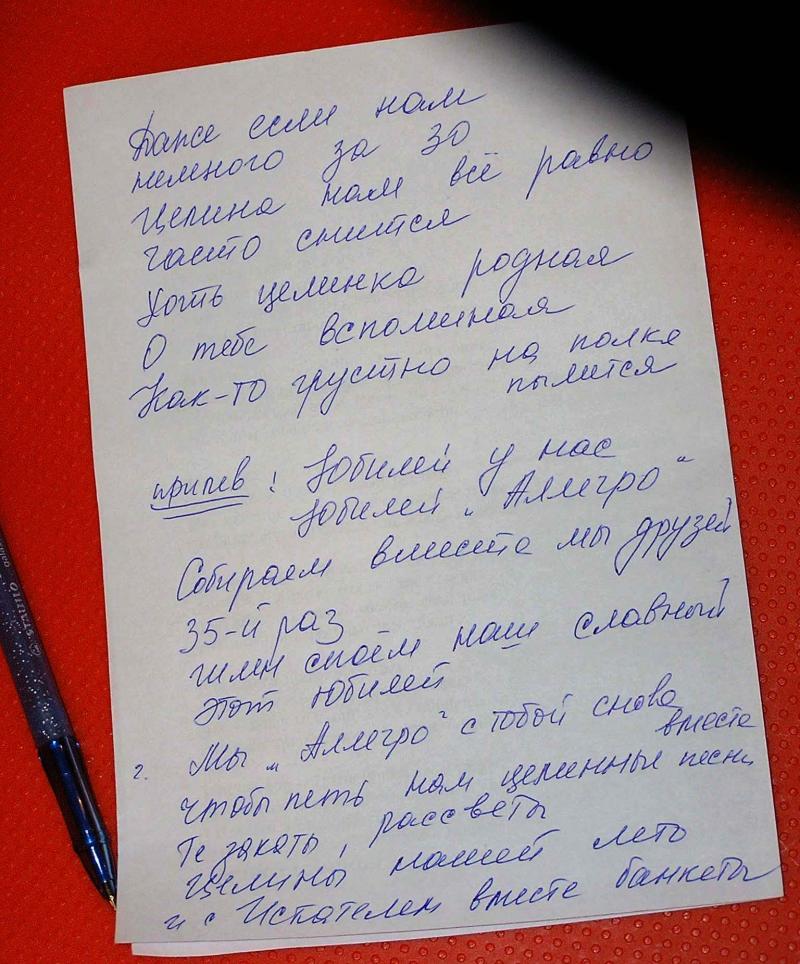 Даже если нам
немного за 30
Целина нам всё равно
часто снится
Хоть целинка родная
О тебе вспоминая
Как-то грустно на полке
пылится
припев: Юбилей у нас
Юбилей „Аллегро“
Собираем вместе мы друзей
35-й раз
гимн споём наш славный
этот юбилей
2. Мы „Аллегро“ с тобой снова
вместе
чтобы петь нам целинные песни
Те закаты, рассветы
Целины нашей лето
и с Искателем вместе банкеты